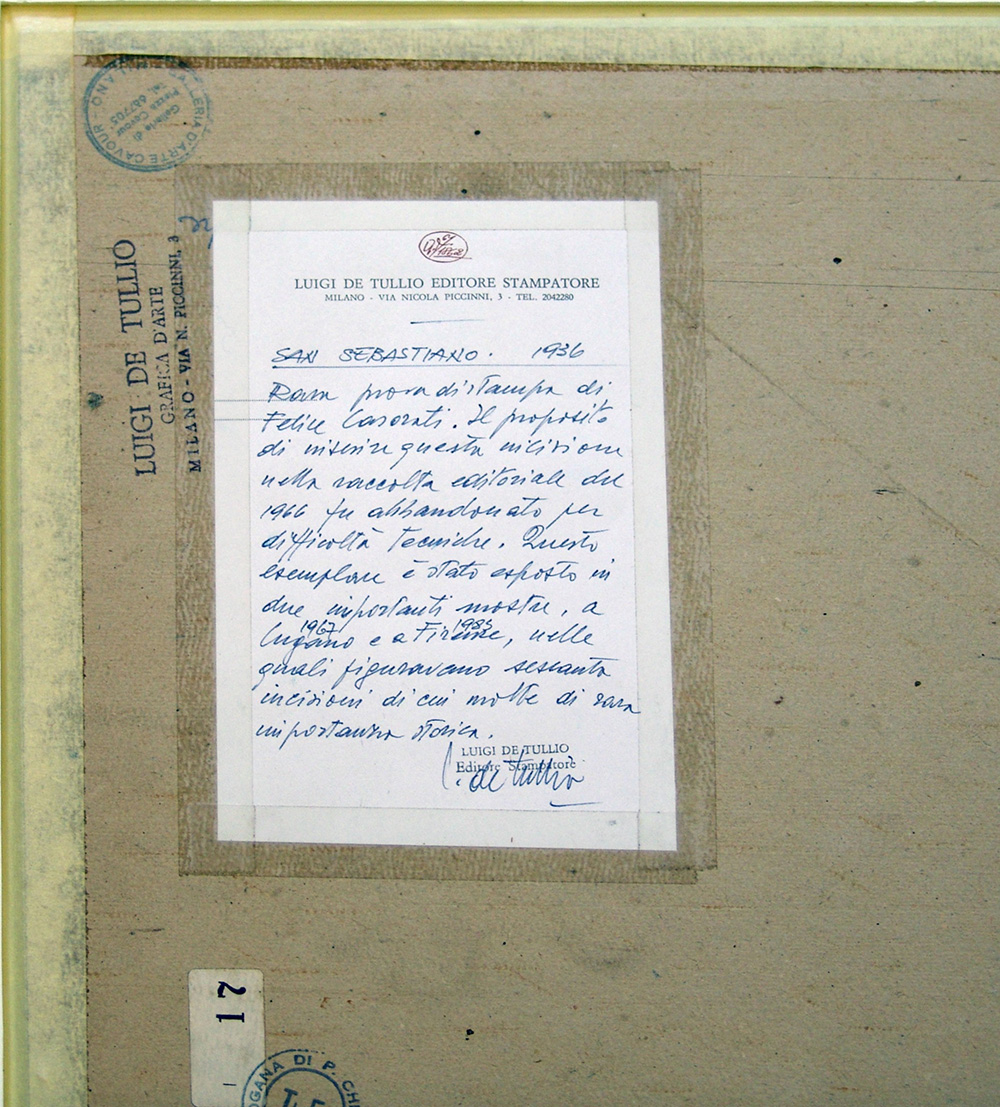 GALLERIA D'ARTE CAVOUR MILANO
Galleria di
Piazza Cavour
Tel. 687705
LUIGI DE TULLIO
GRAFICA D'ARTE
MILANO - VIA N. PICCINNI, 3
LUIGI DE TULLIO EDITORE STAMPATORE
MILANO - VIA NICOLA PICCINNI, 3 - TEL. 2042280
SAN SEBASTIANO. 1936
Rara prova di stampa di
Felice Casorati. Il proposito
di inserire questa incisione
nella raccolta editoriale del
1966 fu abbandonato per
difficoltà tecniche. Questo
esemplare è stato esposto in
due importanti mostre, a
1967 1985
Lugano e a Firenze, nelle
quali figuravano sessanta
incisioni di cui molte di rara
importanza storica.
LUIGI DE TULLIO
Editore Stampatore
L. de Tullio
17
DOGANA DI P. CHI